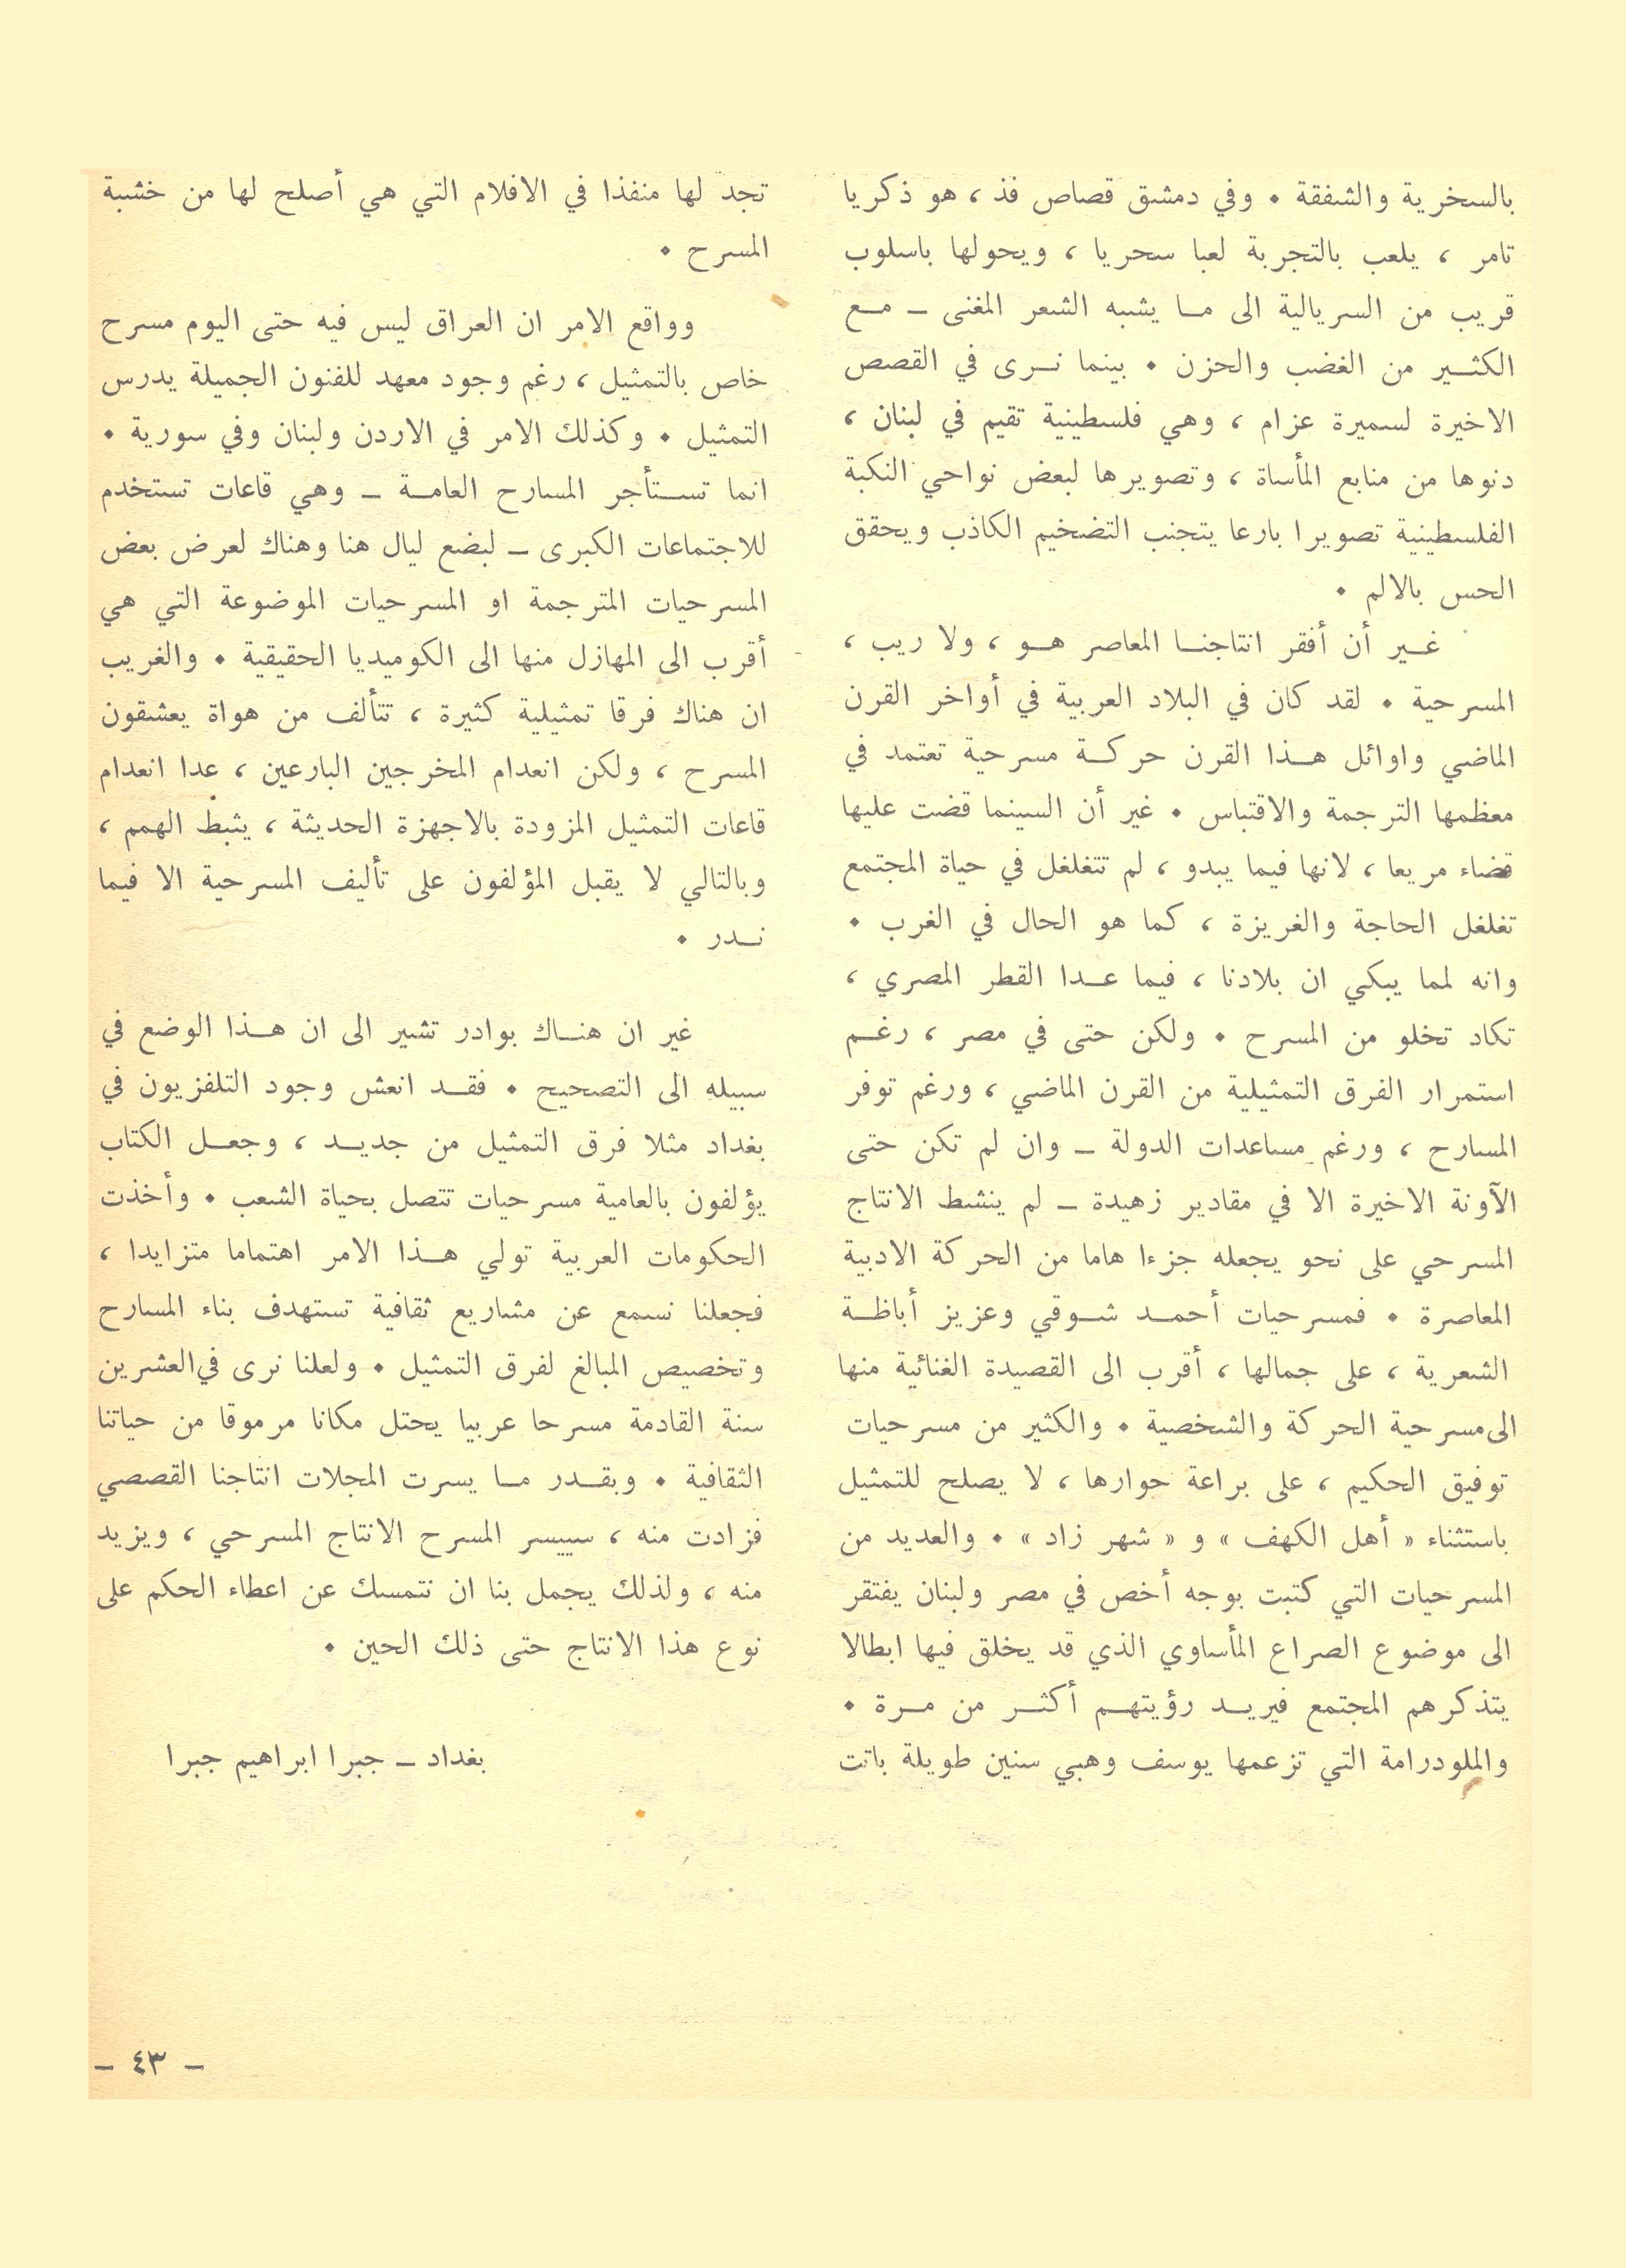 بالسخرية والشفقة • وفي دمشق قصاص فذ ، هو ذكريا
تامر ، يلعب بالتجربة لعبا سحريا ، ويحولها باسلوب
قريب من السريالية الى مـا يشبه الشعر المغنى ـ مـع
الكثـير من الغضب والحزن • بينما نـرى في القصص
الاخيرة لسميرة عزام ، وهي فلسطينية تقيم في لبنان ،
دنوها من منابع المأساة ، وتصويرها لبعض نواحي النكبة
الفلسطينية تصويرا بارعا يتجنب التضخيم الكاذب ويحقق
الحس بالالم •
غـير أن أفقر انتاجنـا المعاصر هـو ، ولا ريب ،
المسرحية • لقد كان في البلاد العربية في أواخر القرن
الماضي واوائل هـذا القرن حركـة مسرحية تعتمد في
معظمها الترجمة والاقتباس • غير أن السينما قضت عليها
قضاء مريعا ، لانها فيما يبدو ، لم تتغلغل في حياة المجتمع
تغلغل الحاجة والغريزة ، كما هو الحال في الغرب •
وانه لمما يبكي ان بلادنا ، فيما عـدا القطر المصري ،
تكاد تخلو من المسرح • ولكن حتى في مصر ، رغـم
استمرار الفرق التمثيلية من القرن الماضي ، ورغم توفر
المسارح ، ورغم مساعدات الدولة ـ وان لم تكن حتى
الآونة الاخيرة الا في مقادير زهيدة ـ لم ينشط الانتاج
المسرحي على نحو يجعله جزءا هاما من الحركة الادبية
المعاصرة • فمسرحيات أحمـد شـوقي وعزيز أباظـة
الشعرية ، على جمالها ، أقرب الى القصيدة الغنائية منها
الى مسرحية الحركة والشخصية • والكثير من مسرحيات
توفيق الحكيم ، على براعة حوارها ، لا يصلح للتمثيل
باستثناء « أهل الكهف » و « شهر زاد » • والعديد من
المسرحيات التي كتبت بوجه أخص في مصر ولبنان يفتقر
الى موضوع الصراع المأساوي الذي قد يخلق فيها ابطالا
يتذكرهم المجتمع فيريـد رؤيتهـم أكثـر من مـرة •
والملودرامة التي تزعمها يوسف وهبي سنين طويلة باتت
تجد لها منفذا في الافلام التي هي أصلح لها من خشبة
المسرح •
وواقع الامر ان العراق ليس فيه حتى اليوم مسرح
خاص بالتمثيل ، رغم وجود معهد للفنون الجميلة يدرس
التمثيل • وكذلك الامر في الاردن ولبنان وفي سورية •
انما تسـتأجر المسارح العامـة ـ وهي قاعات تستخدم
للاجتماعات الكبرى ـ لبضع ليال هنا وهناك لعرض بعض
المسرحيات المترجمة او المسرحيات الموضوعة التي هي
أقرب الى المهازل منها الى الكوميديا الحقيقية • والغريب
ان هناك فرقا تمثيلية كثيرة ، تتألف من هواة يعشقون
المسرح ، ولكن انعدام المخرجين البارعين ، عدا انعدام
قاعات التمثيل المزودة بالاجهزة الحديثة ، يثبط الهمم ،
وبالتالي لا يقبل المؤلفون على تأليف المسرحية الا فيما
نـدر •
غير ان هنـاك بوادر تشير الى ان هـذا الوضع في
سبيله الى التصحيح • فقـد انعش وجود التلفزيون في
بغداد مثلا فرق التمثيل من جديـد ، وجعـل الكتاب
يؤلفون بالعامية مسرحيات تتصل بحياة الشعب • وأخذت
الحكومات العربية تولي هـذا الامر اهتماما متزايدا ،
فجعلنا نسمع عن مشاريع ثقافية تستهدف بناء المسارح
وتخصيص المبالغ لفرق التمثيل • ولعلنا نرى في العشرين
سنة القادمة مسرحا عربيا يحتل مكانا مرموقا من حياتنا
الثقافية • وبقـدر مـا يسرت المجلات انتاجنا القصصي
فزادت منه ، سييسر المسرح الانتاج المسرحي ، ويزيد
منه ، ولذلك يجمل بنا ان نتمسك عن اعطاء الحكم على
نوع هذا الانتاج حتى ذلك الحين •
بغداد ـ جبرا ابراهيم جبرا
ـ ٤٣ ـ